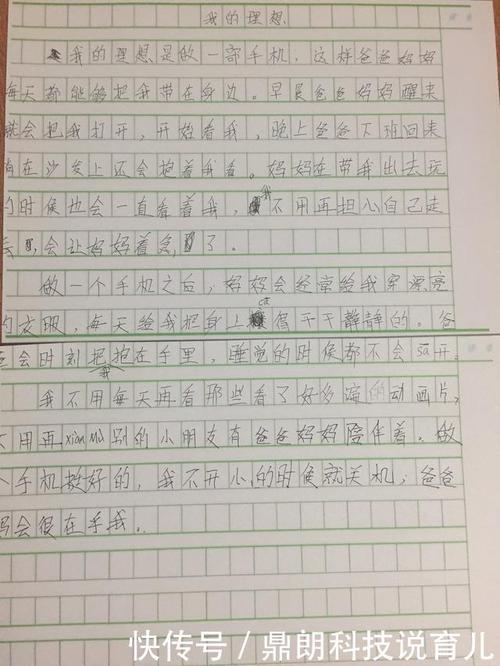 我的理想
我的理想是做一部手机,这样爸爸妈妈
每天都能够把我带在身边。早晨爸爸妈妈醒来
就会把我打开,开始看我,晚上爸爸下班回来
在沙发上还会抱着我看。妈妈在带我出去玩
的时候也会一直看着我,我不用再担心自己走
丢,会让妈妈着急了。
做一个手机之后,妈妈会经常给我穿漂亮
的衣服,每天给我把身上ca得干干静静的。爸
爸会时刻把我抱在手里,睡觉的时候都不会sā开。
我不用每天再看那些看了好多遍的动画片,
不用再xiàn mù别的小朋友有爸爸妈妈陪伴着。做
个手机挺好的,我不开心的时候就关机,爸爸
妈会很在乎我.
快传号/鼎朗科技说育儿